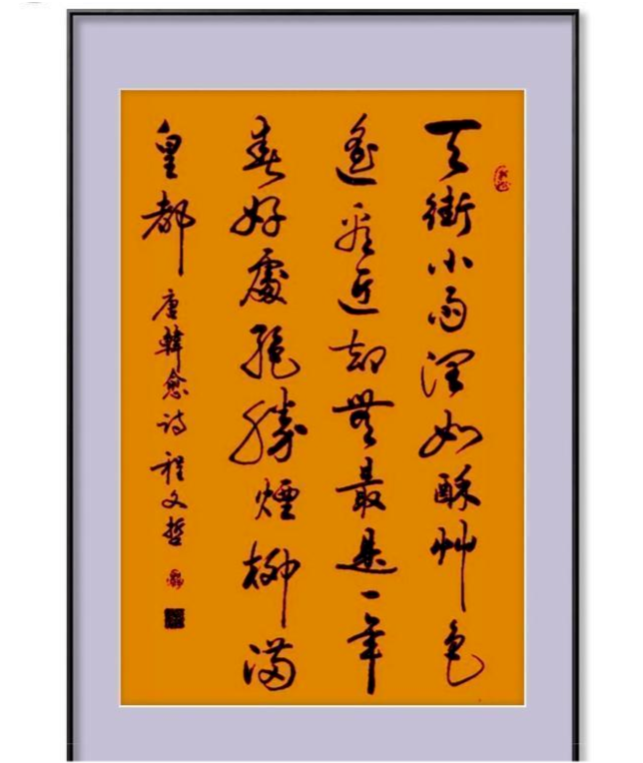 天街小雨潤如酥艸色
遙看近却無最是一年
春好處絕勝煙柳滿
皇都
唐韓愈詩 程文哲